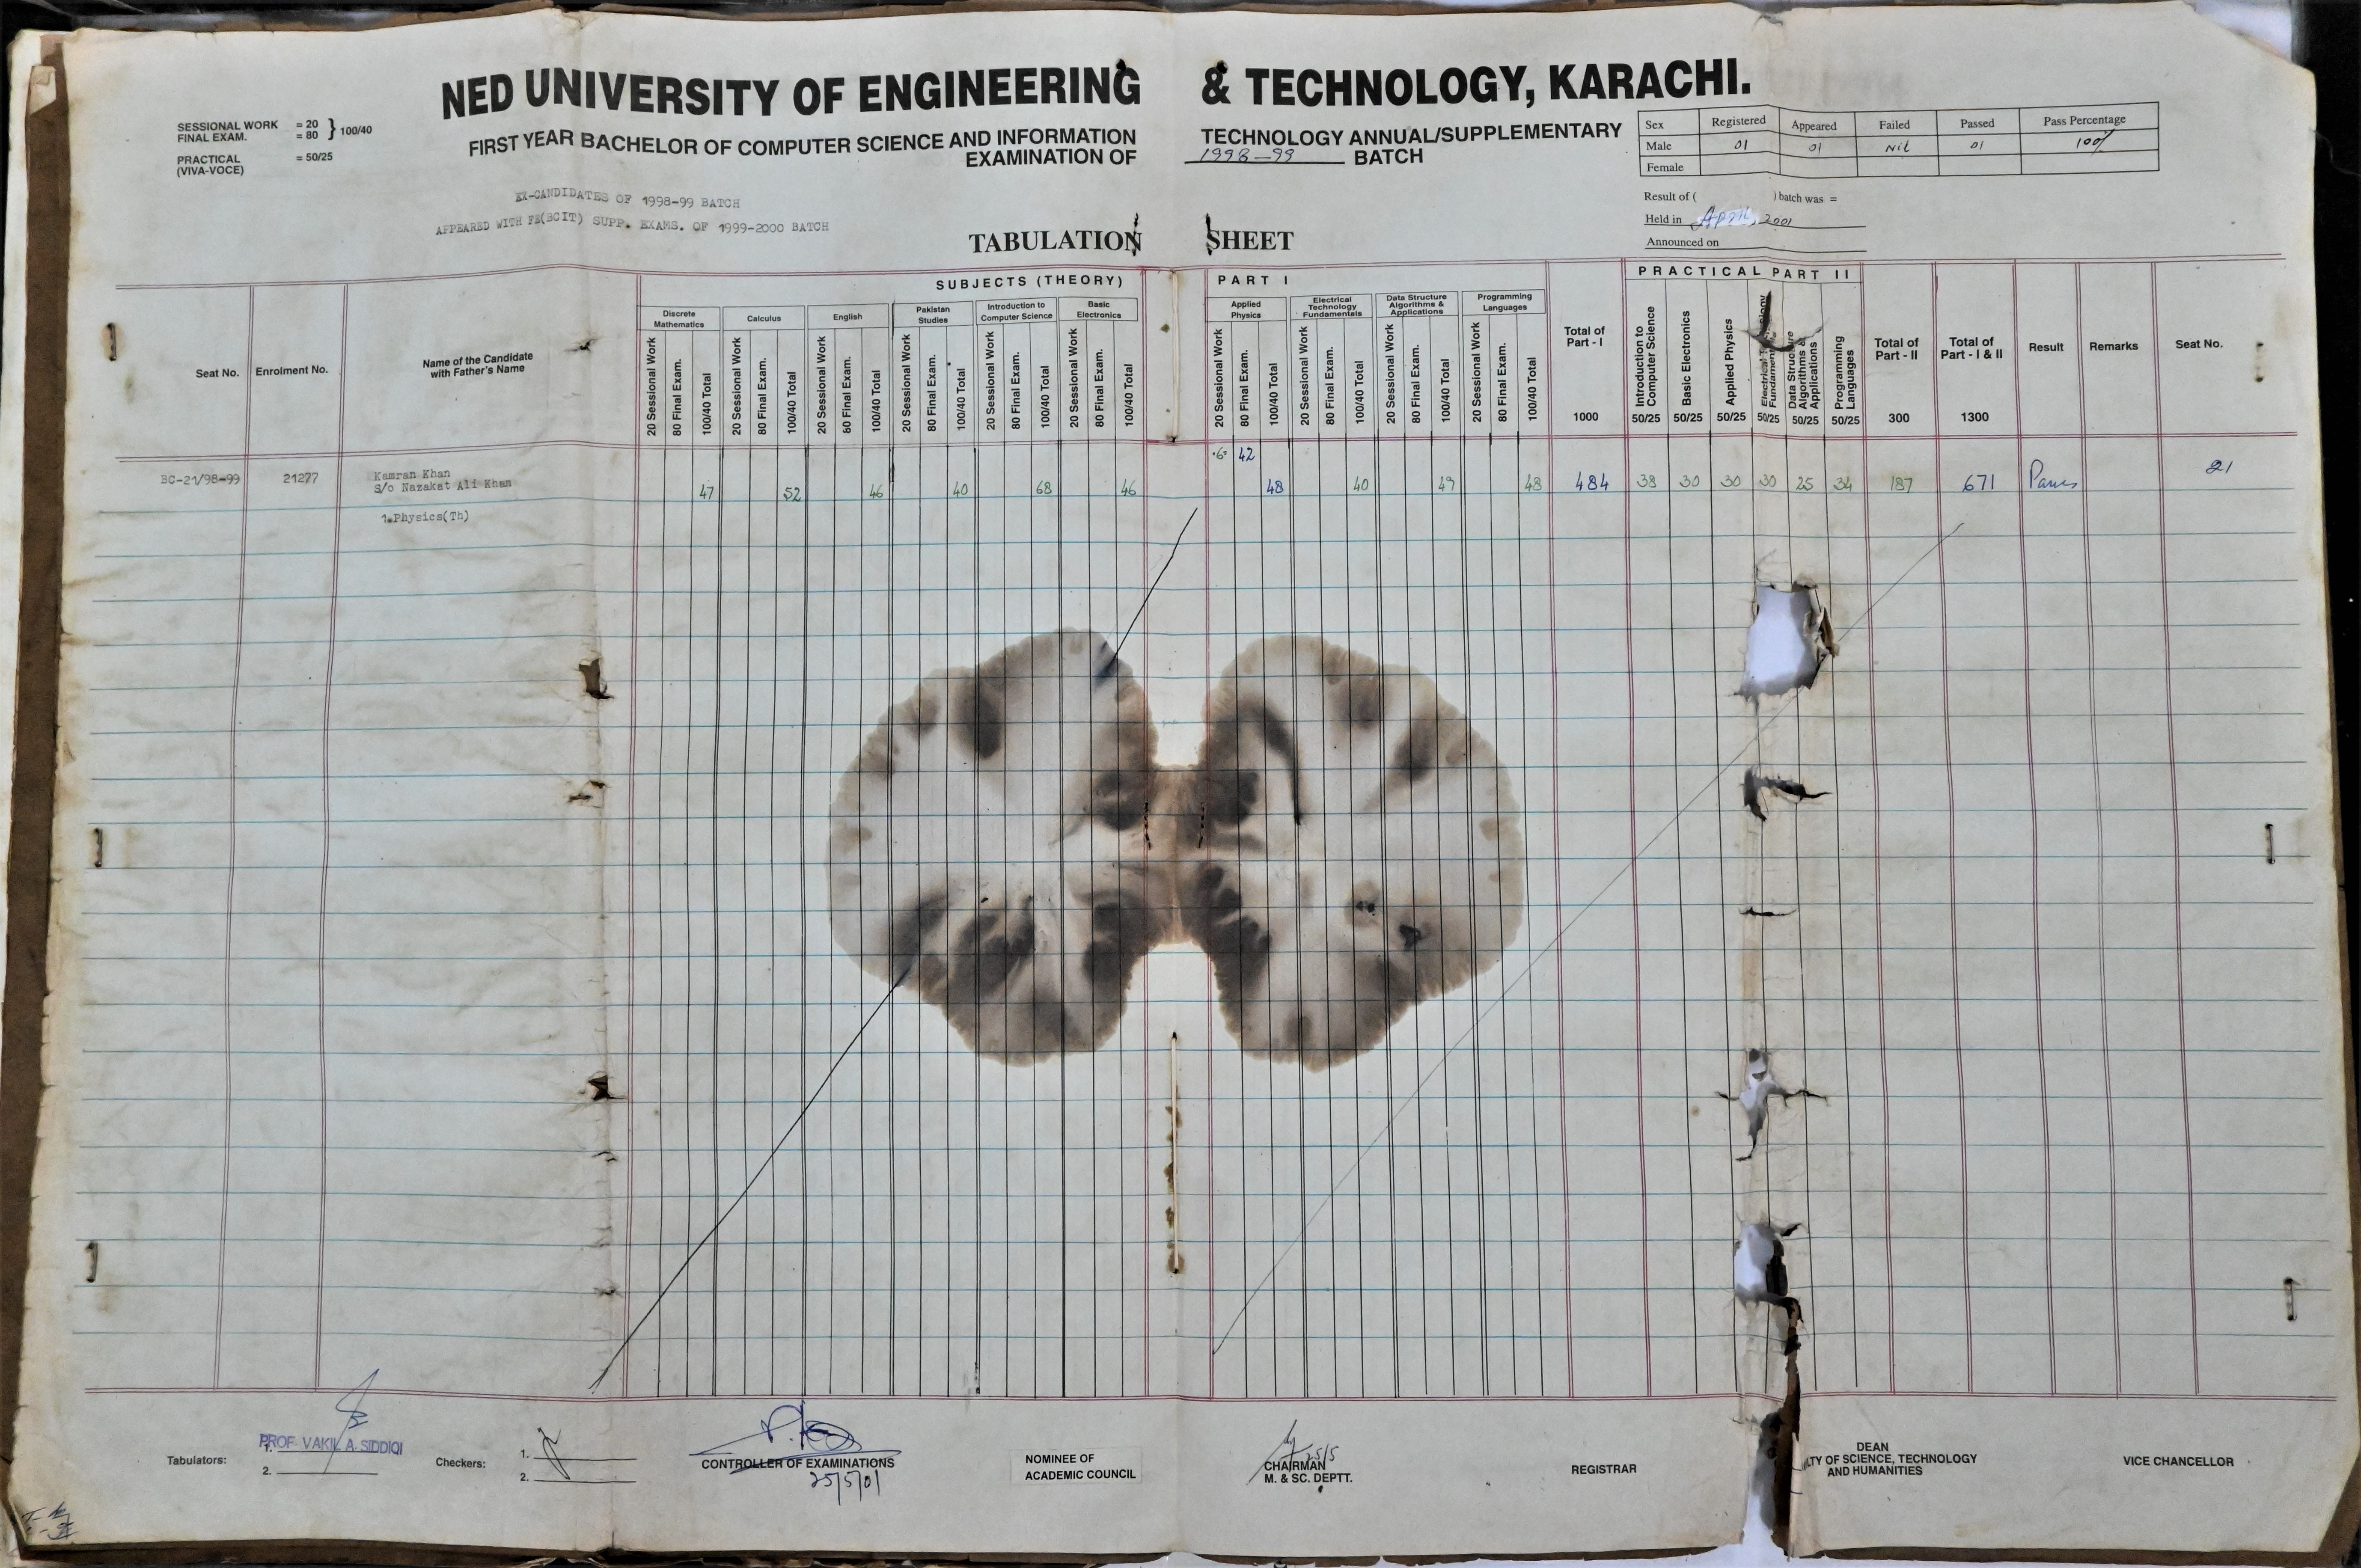 NED UNIVERSITY OF ENGINEERING & TECHNOLOGY, KARACHI.
SESSIONAL WORK = 20
FINAL EXAM. = 80 } 100/40
PRACTICAL = 50/25
(VIVA-VOCE)
FIRST YEAR BACHELOR OF COMPUTER SCIENCE AND INFORMATION TECHNOLOGY ANNUAL/SUPPLEMENTARY
EXAMINATION OF 1998-99 BATCH
Sex Registered Appeared Failed Passed Pass Percentage
Male 01 01 Nil 01 100%
Female
EX-CANDIDATES OF 1998-99 BATCH
APPEARED WITH FE(BCIT) SUPP. EXAMS. OF 1999-2000 BATCH
Result of ( ) batch was =
Held in April, 2001
Announced on
TABULATION SHEET
SUBJECTS (THEORY) PART I PRACTICAL PART II
Seat No. Enrolment No. Name of the Candidate with Father's Name
Discrete Mathematics
20 Sessional Work 80 Final Exam. 100/40 Total
Calculus
20 Sessional Work 80 Final Exam. 100/40 Total
English
20 Sessional Work 80 Final Exam. 100/40 Total
Pakistan Studies
20 Sessional Work 80 Final Exam. 100/40 Total
Introduction to Computer Science
20 Sessional Work 80 Final Exam. 100/40 Total
Basic Electronics
20 Sessional Work 80 Final Exam. 100/40 Total
Applied Physics
20 Sessional Work 80 Final Exam. 100/40 Total
Electrical Technology Fundamentals
20 Sessional Work 80 Final Exam. 100/40 Total
Data Structure Algorithms & Applications
20 Sessional Work 80 Final Exam. 100/40 Total
Programming Languages
20 Sessional Work 80 Final Exam. 100/40 Total
Total of Part - I 1000
Introduction to Computer Science 50/25
Basic Electronics 50/25
Applied Physics 50/25
Electrical Fundamen 50/25
Data Structure Algorithms & Applications 50/25
Programming Languages 50/25
Total of Part - II 300
Total of Part - I & II 1300
Result Remarks Seat No.
6 42
BC-21/98-99 21277 Kamran Khan
S/o Nazakat Ali Khan 47 52 46 40 68 46 48 40 49 48 484 38 30 30 30 25 34 187 671 Passes 21
1.Physics(Th)
Tabulators: 1. PROF. VAKIL A. SIDDIQI
2.
Checkers: 1.
2.
CONTROLLER OF EXAMINATIONS
25/5/01
NOMINEE OF
ACADEMIC COUNCIL
25/5
CHAIRMAN
M. & SC. DEPTT.
REGISTRAR
DEAN
LTY OF SCIENCE, TECHNOLOGY
AND HUMANITIES
VICE CHANCELLOR